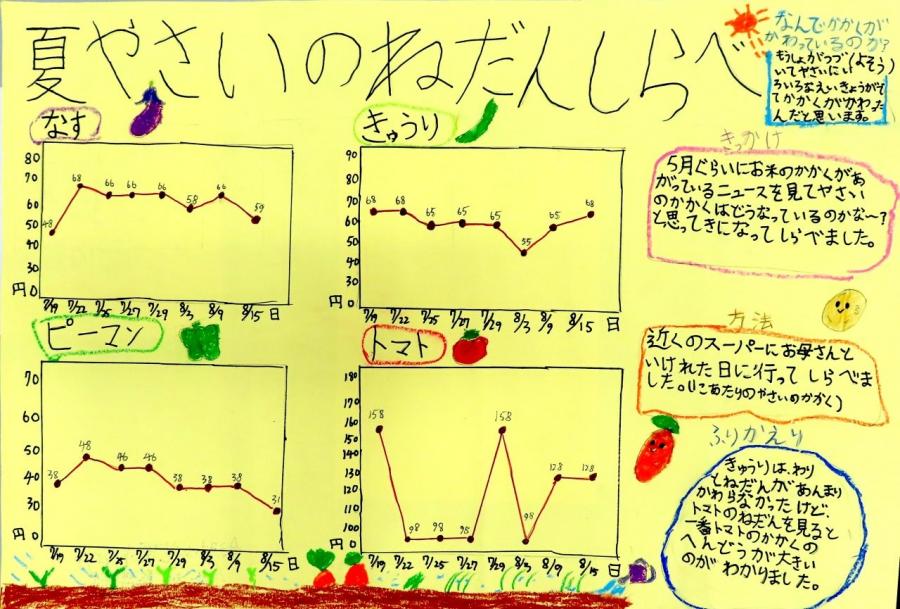 夏やさいのねだんしらべ
なんでかかくが
かわっているのか?
もうしょがつづ(よそう)
いてやさいにい
ろいろなえいきょうがで
てかかくがかわった
んだと思います。
なす
80
70
60
50
40
30
円0
48
68
66
66
66
58
66
59
7/19 7/22 7/25 7/27 7/29 8/3 8/9 8/15 日
きゅうり
90
80
70
60
50
40
30
円0
68
68
65
65
65
55
65
68
7/19 7/22 7/25 7/27 7/29 8/3 8/9 8/15 日
きっかけ
5月ぐらいにお米のかかくがあ
がっているニュースを見てやさい
のかかくはどうなっているのかな〜?
と思ってきになってしらべました。
ピーマン
70
60
50
40
30
円0
38
48
46
46
38
38
38
31
7/19 7/22 7/25 7/27 7/29 8/3 8/9 8/15 日
トマト
180
170
160
150
140
130
120
110
100
円0
158
98
98
98
158
98
128
128
7/19 7/22 7/25 7/27 7/29 8/3 8/9 8/15 日
方法
近くのスーパーにお母さんと
いけれた日に行ってしらべま
した。(1こあたりのやさいのかかく)
ふりかえり
きゅうりは、わり
とねだんがあんまり
かわらなかったけど、
トマトのねだんを見ると
一番トマトのかかくの
へんどうが大きい
のがわかりました。